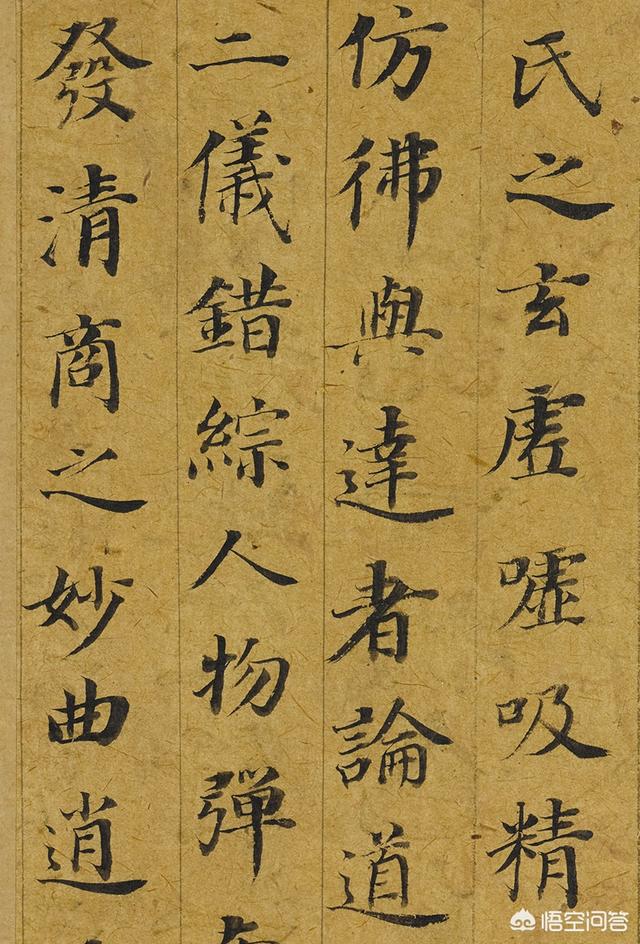 氏之玄虛噓吸精
仿彿與達者論道
二儀錯綜人物彈
發清商之妙曲逍
悟空问答